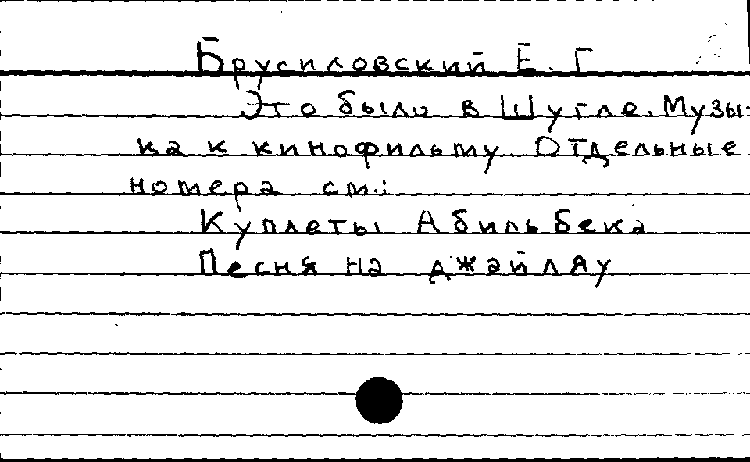 Брусиловский Е. Г
Это было в Шугле. Музы-
ка к кинофильму Отдельные
номера см.:
Куплеты Абильбека
Песня на джайляу